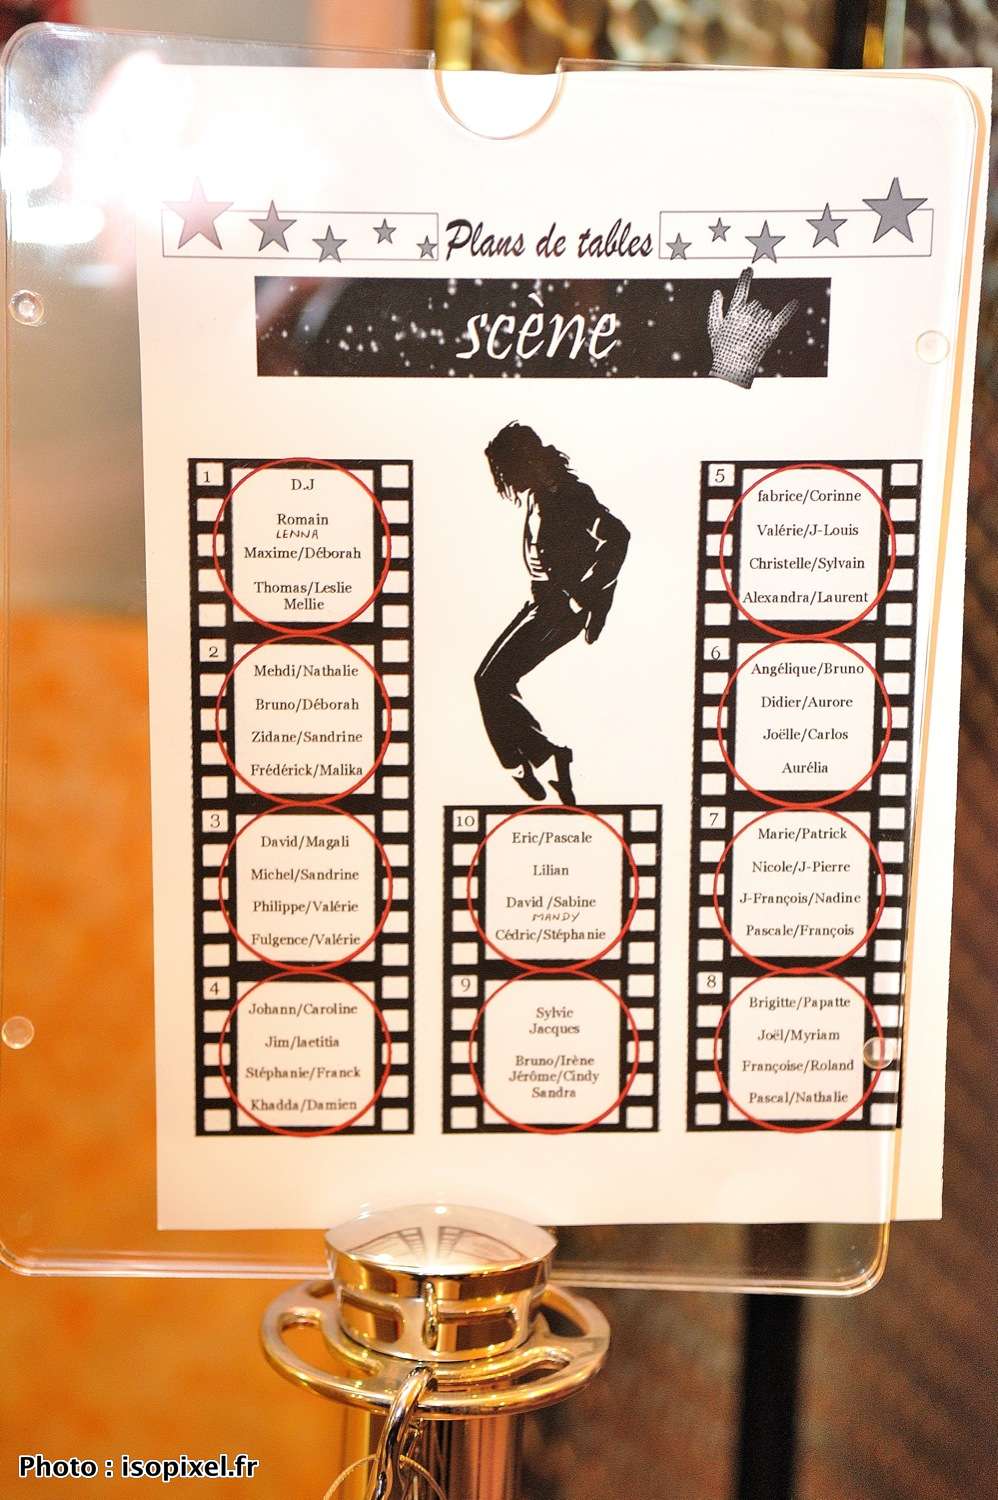 Plans de tables
scène
1
D.J
Romain
LENNA
Maxime/Déborah
Thomas/Leslie
Mellie
2
Mehdi/Nathalie
Bruno/Déborah
Zidane/Sandrine
Frédérick/Malika
3
David/Magali
Michel/Sandrine
Philippe/Valérie
Fulgence/Valérie
4
Johann/Caroline
Jim/laetitia
Stéphanie/Franck
Khadda/Damien
10
Eric/Pascale
Lilian
David /Sabine
MANDY
Cédric/Stéphanie
9
Sylvie
Jacques
Bruno/Irène
Jérôme/Cindy
Sandra
5
fabrice/Corinne
Valérie/J-Louis
Christelle/Sylvain
Alexandra/Laurent
6
Angélique/Bruno
Didier/Aurore
Joëlle/Carlos
Aurélia
7
Marie/Patrick
Nicole/J-Pierre
J-François/Nadine
Pascale/François
8
Brigitte/Papatte
Joël/Myriam
Françoise/Roland
Pascal/Nathalie
Photo : isopixel.fr